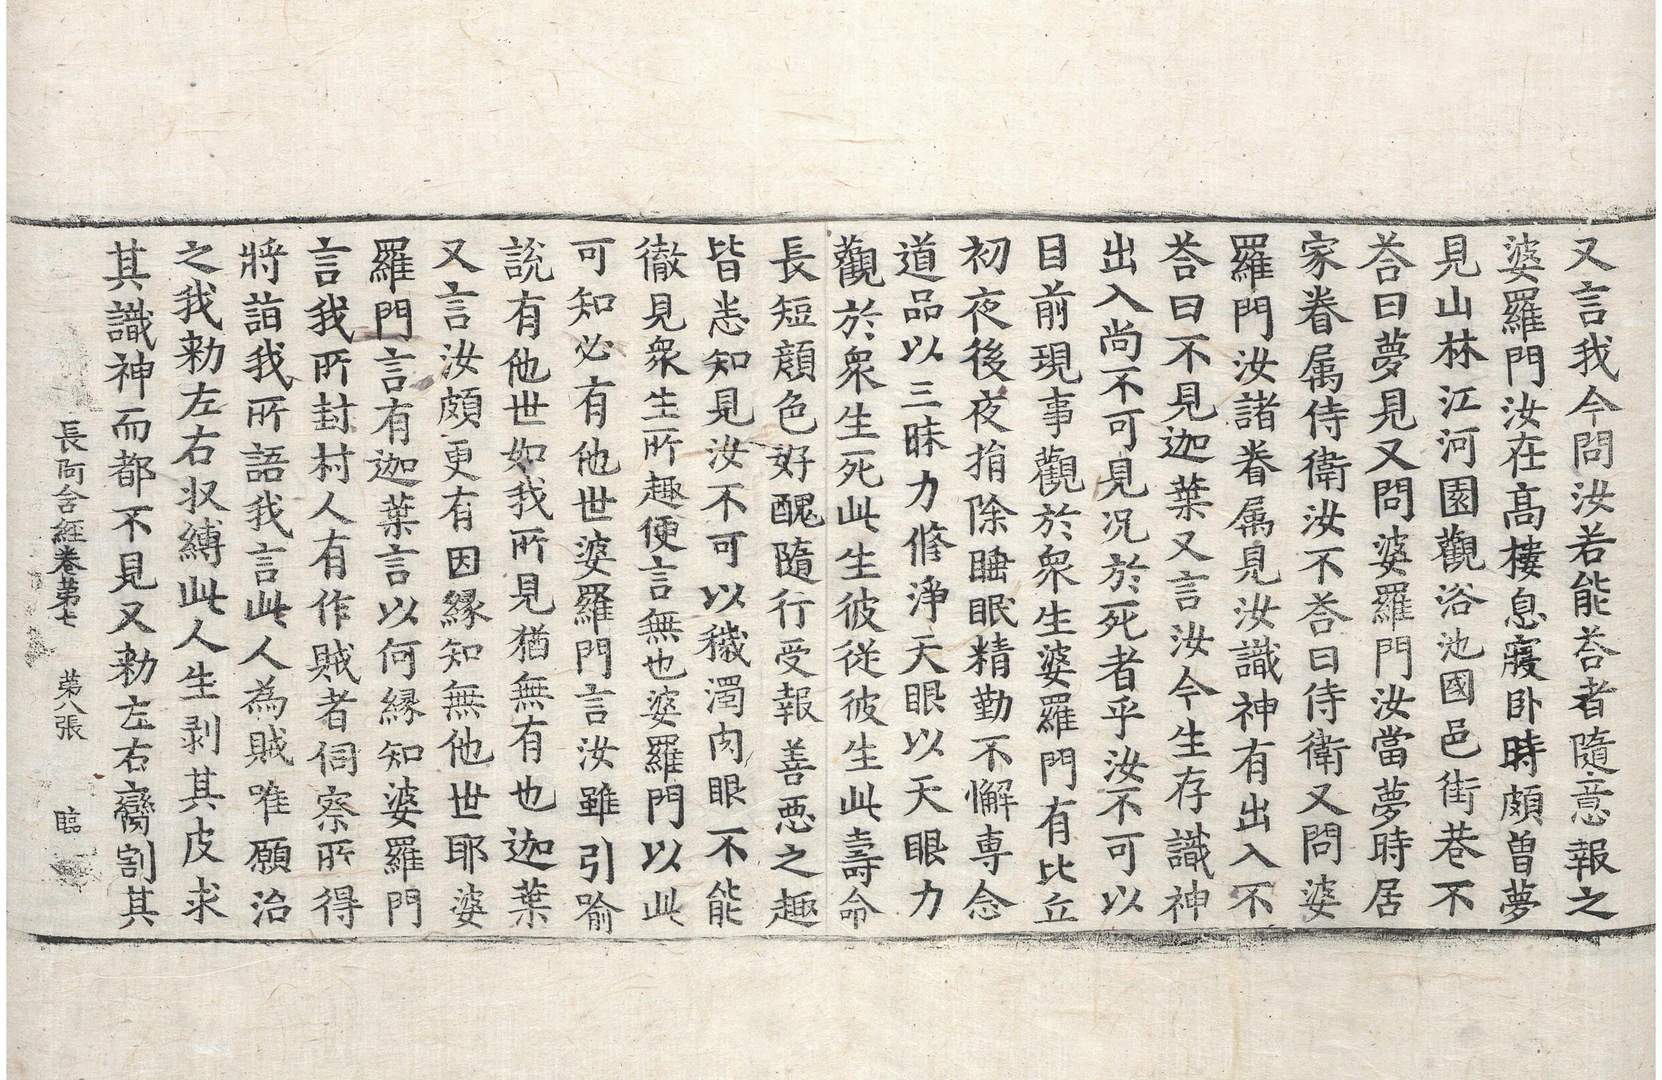 又言我今問汝若能荅者隨意報之
婆羅門汝在高樓息寢卧時頗曽夢
見山林江河園觀浴池國邑街巷不
荅曰夢見又問婆羅門汝當夢時居
家眷属侍衛汝不荅曰侍衛又問婆
羅門汝諸眷属見汝識神有出入不
荅曰不見迦葉又言汝今生存識神
出入尚不可見况於死者乎汝不可以
目前現事觀於衆生婆羅門有比丘
初夜後夜捐除睡眠精勤不懈専念
道品以三昧力修淨天眼以天眼力
觀於衆生死此生彼從彼生此壽命
長短顔色好醜隨行受報善惡之趣
皆悉知見汝不可以穢濁肉眼不能
徹見衆生所趣便言無也婆羅門以此
可知必有他世婆羅門言汝雖引喻
說有他世如我所見猶無有也迦葉
又言汝頗更有因縁知無他世耶婆
羅門言有迦葉言以何縁知婆羅門
言我所封村人有作賊者伺察所得
將詣我所語我言此人為賊唯願治
之我勑左右収縛此人生剥其皮求
其識神而都不見又勑左右臠割其
長阿含經卷第七 第八張 臨